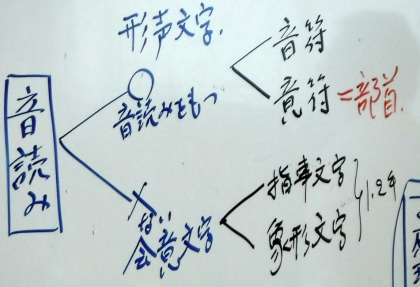 形声文字.
音読み
音読みをもつ
音符
意符=部首.
ない
会意文字
指事文字
象形文字
1.2年